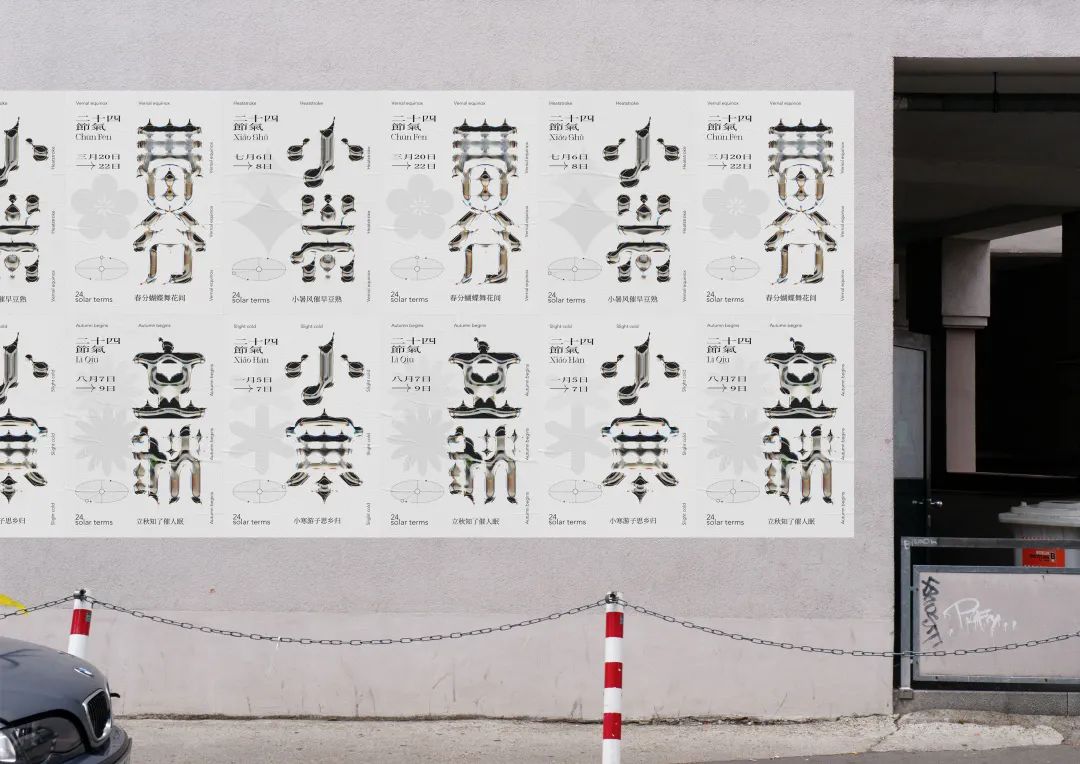 Vernal equinox
Vernal equinox
二十四
節氣
Chūn Fēn
三月20日
→22日
春分
Vernal equinox
Vernal equinox
Vernal equinox
24
solar terms
春分蝴蝶舞花间
Heatstroke
Heatstroke
二十四
節氣
Xiǎo Shǔ
七月6日
→8日
小暑
Heatstroke
Heatstroke
Vernal equinox
24
solar terms
小暑风催早豆熟
Vernal equinox
Vernal equinox
二十四
節氣
Chūn Fēn
三月20日
→22日
春分
Vernal equinox
Vernal equinox
Vernal equinox
24
solar terms
春分蝴蝶舞花间
Heatstroke
Heatstroke
二十四
節氣
Xiǎo Shǔ
七月6日
→8日
小暑
Heatstroke
Heatstroke
Vernal equinox
24
solar terms
小暑风催早豆熟
Vernal equinox
Vernal equinox
二十四
節氣
Chūn Fēn
三月20日
→22日
春分
Vernal equinox
Vernal equinox
Vernal equinox
24
solar terms
春分蝴蝶舞花间
Autumn begins
Autumn begins
二十四
節氣
Lì Qiū
八月7日
→9日
立秋
Autumn begins
Autumn begins
Autumn begins
24
solar terms
立秋知了催人眠
Slight cold
Slight cold
二十四
節氣
Xiǎo Hán
一月5日
→7日
小寒
Slight cold
Slight cold
Slight cold
24
solar terms
小寒游子思乡归
Autumn begins
Autumn begins
二十四
節氣
Lì Qiū
八月7日
→9日
立秋
Autumn begins
Autumn begins
Autumn begins
24
solar terms
立秋知了催人眠
Slight cold
Slight cold
二十四
節氣
Xiǎo Hán
一月5日
→7日
小寒
Slight cold
Slight cold
Slight cold
24
solar terms
小寒游子思乡归
Autumn begins
Autumn begins
二十四
節氣
Lì Qiū
八月7日
→9日
立秋
Autumn begins
Autumn begins
Autumn begins
24
solar terms
立秋知了催人眠